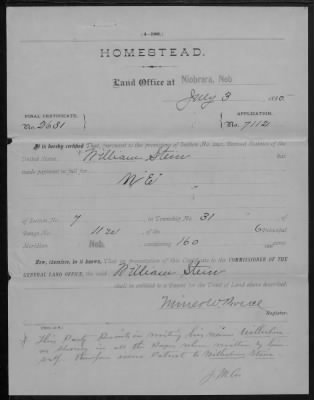 (4—196.)
HOMESTEAD.
Land Office at Niobrara, Neb
July 3 1890.
FINAL CERTIFICATE. APPLICATION.
No. 2631 No. 7112
It is hereby certified That, pursuant to the provisions of Section No. 2291, Revised Statutes of the
United States, William Stein has
made payment in full for
NE
of Section No. 7 in Township No. 31 of
Range No. 11 W of the 6 Principal
Meridian Neb. containing 160 acres.
Now, therefore, be it known, That on presentation of this Certificate to the COMMISSIONER OF THE
GENERAL LAND OFFICE, the said William Stein
shall be entitled to a Patent for the Tract of Land above described.
Register.
This Party in writing his name
in all the Papers when written by him
self therefore issue Patent to Stein